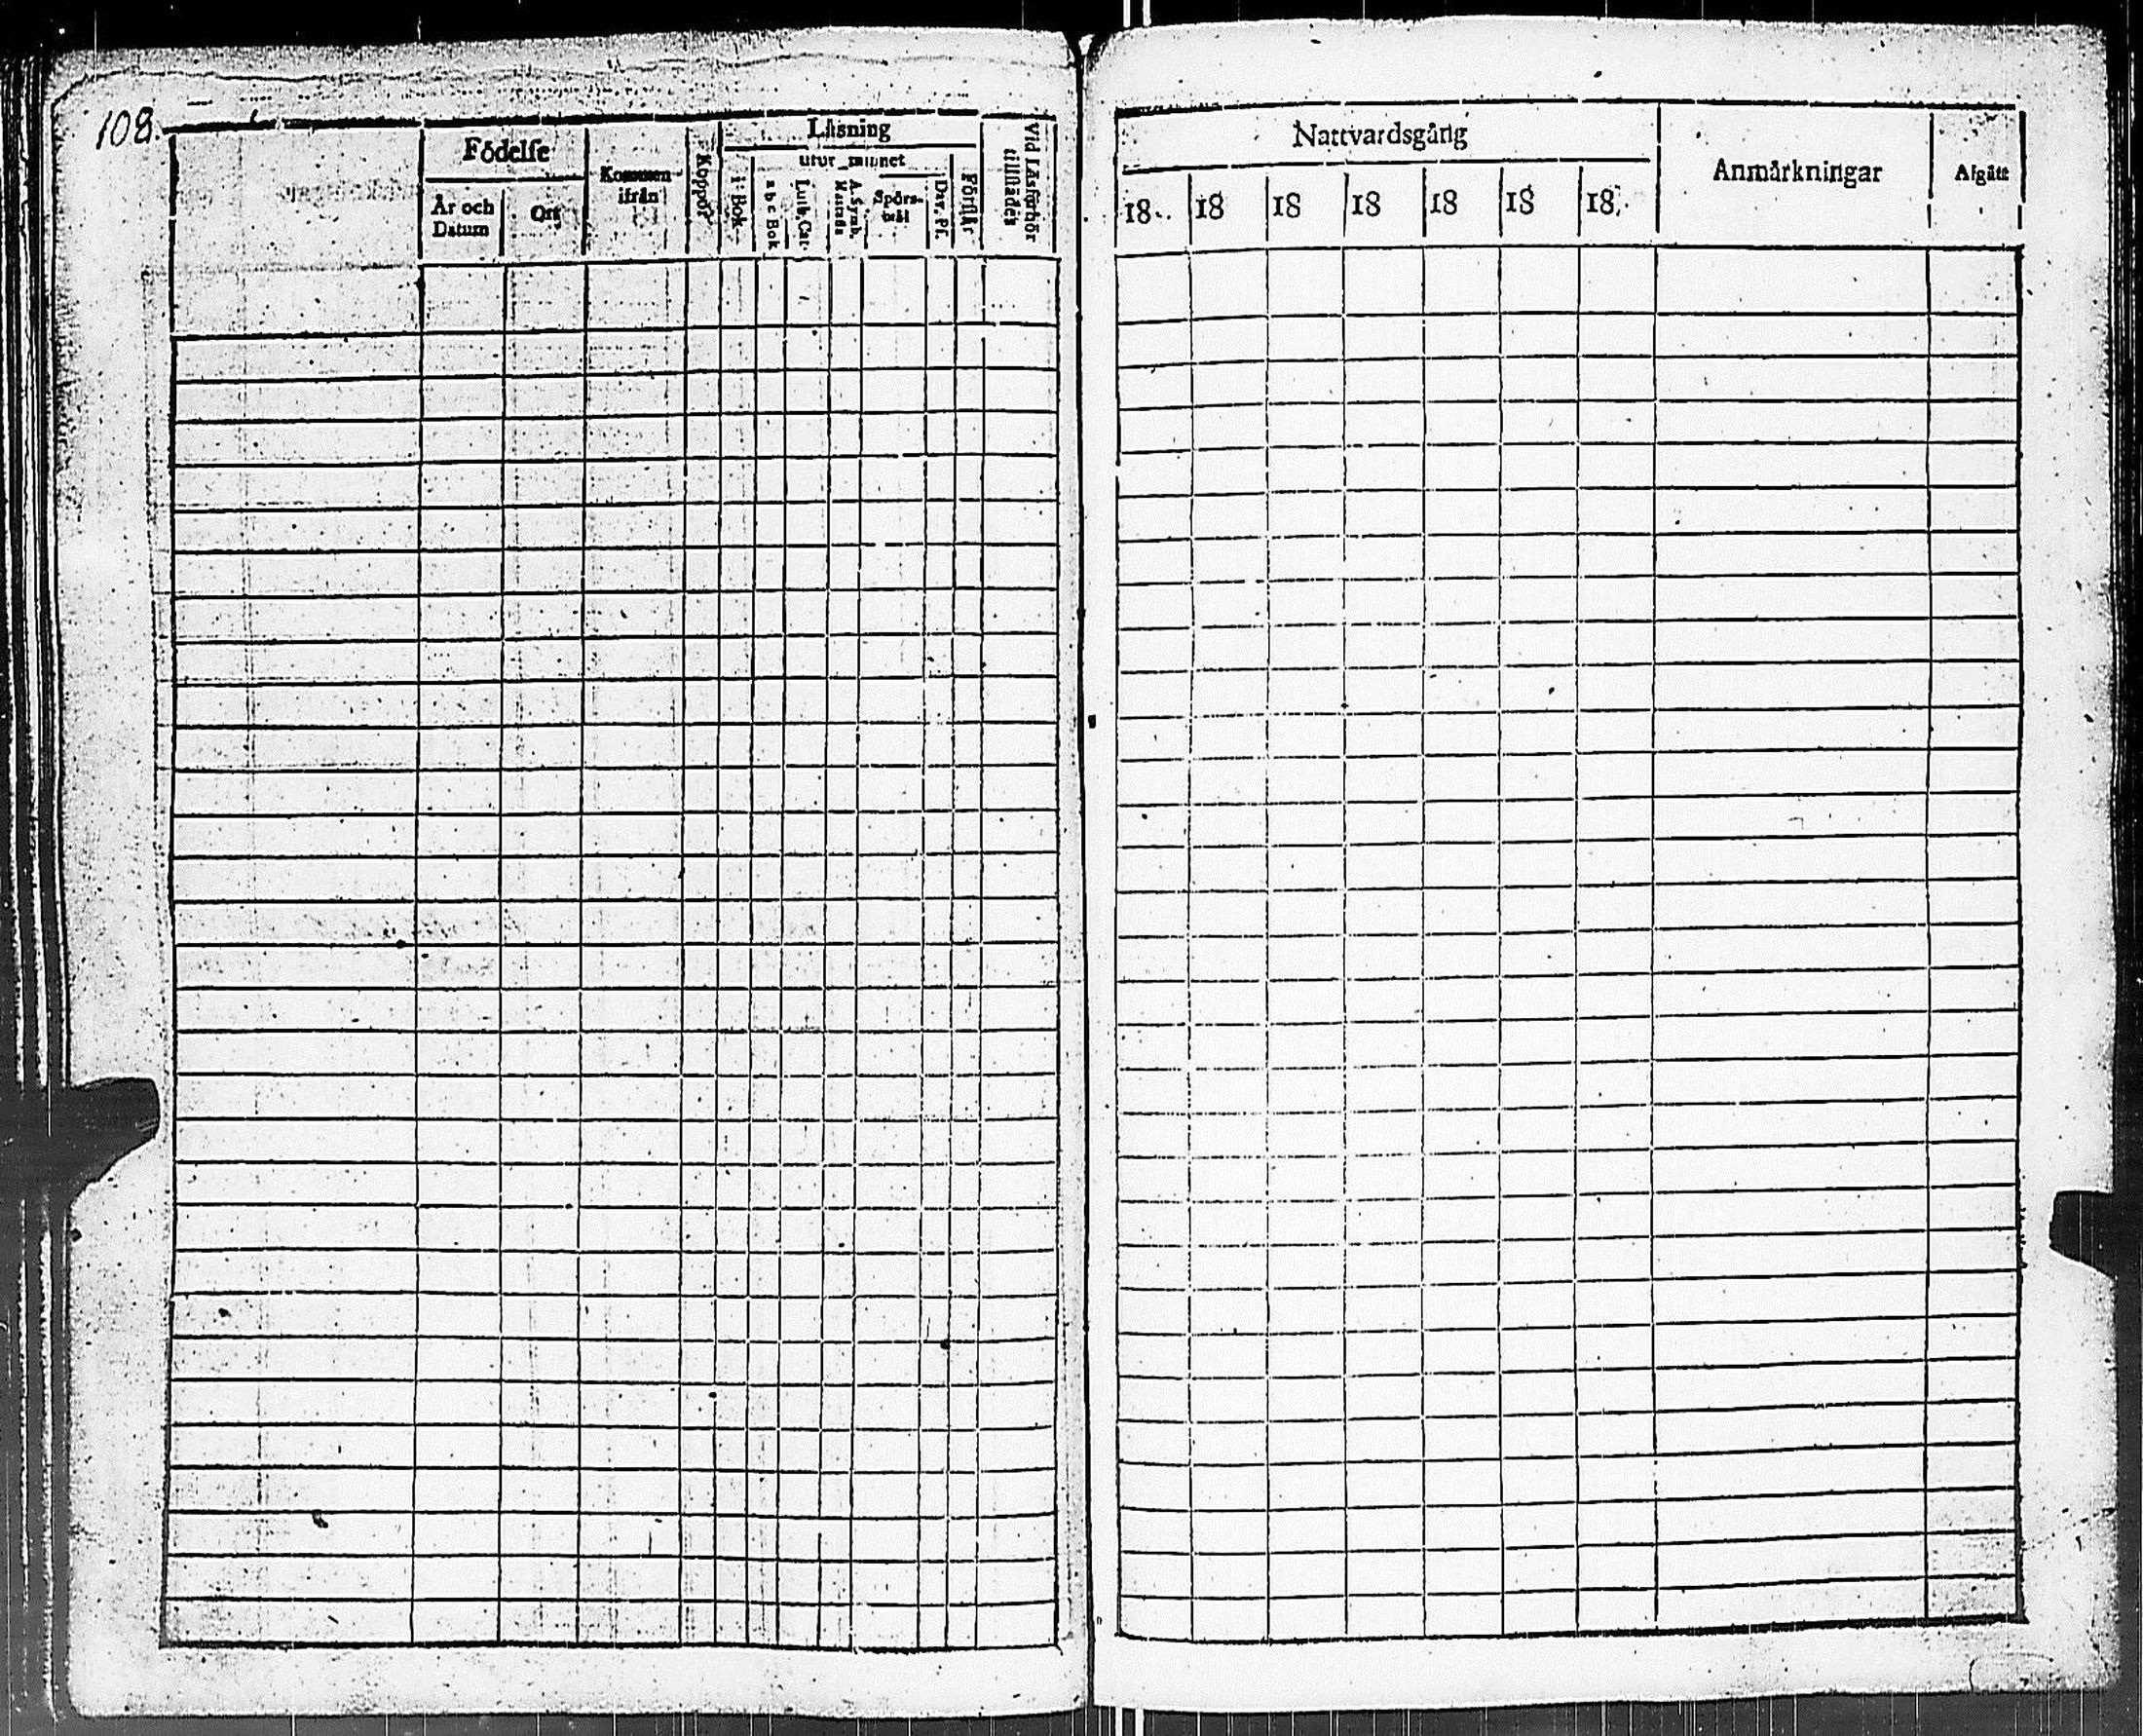 108.
Födelse
År och Datum
Ort
Kommen ifrån
Koppor
Läsning
i Bok
utur minnet
a b c Bok
Luth. Cat.
A. Symb.
Spörs-
mål
Dav. Ps.
Förstår
Vid Läsförhör
tillstädes
Nattvardsgång
18 18 18 18 18 18 18
Anmärkningar
Afgått